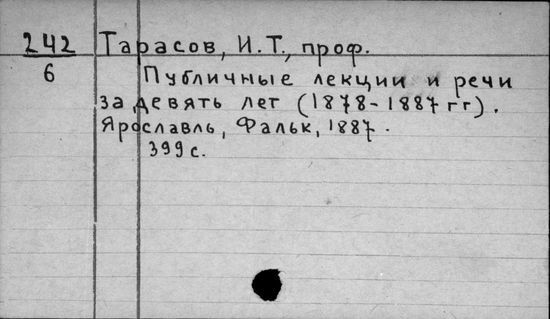 242 Тарасов, И.Т., проф.
6 Публичные лекции и речи
за девять лет (1878-1887 гг).
Ярославль, Фальк, 1887.
399 с.